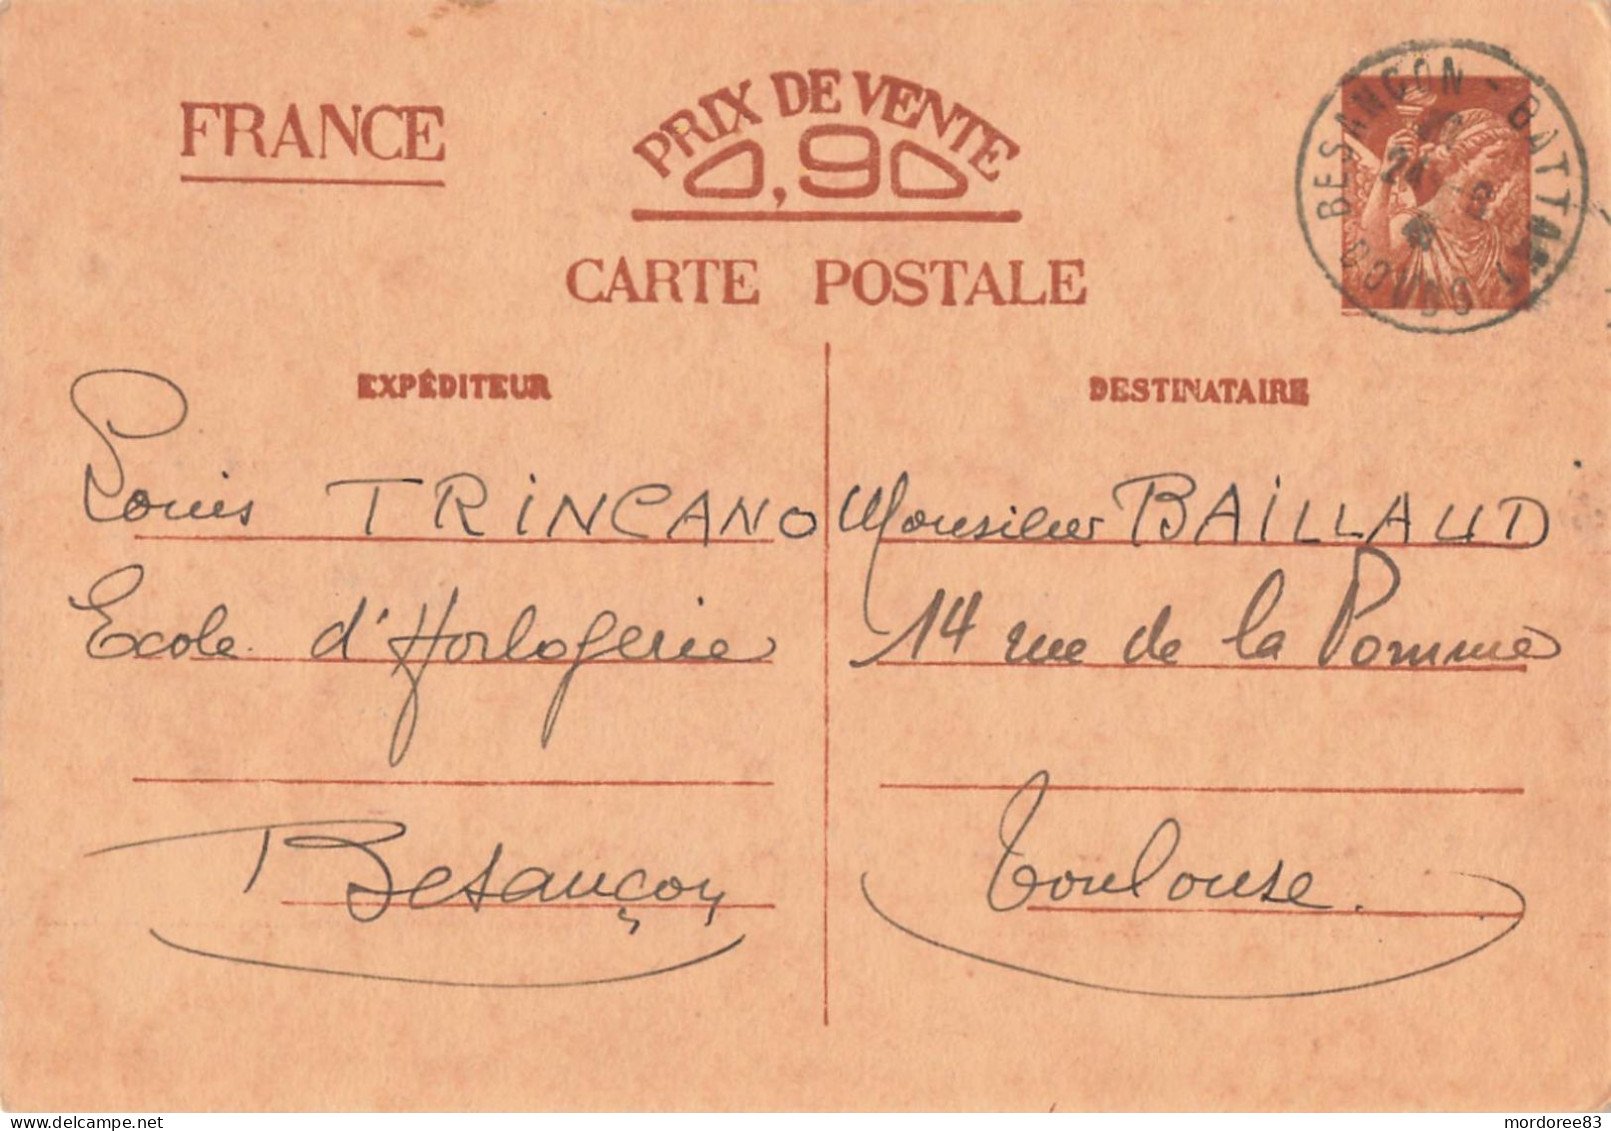 FRANCE
PRIX DE VENTE
0,90
CARTE POSTALE
BESANÇON - BATTANT
24
DOUBS
EXPÉDITEUR
Louis TRINCANO
Ecole d'Horlogerie
Besançon
DESTINATAIRE
Monsieur BAILLAUD
14 rue de la Pomme
Toulouse.
mordoree83